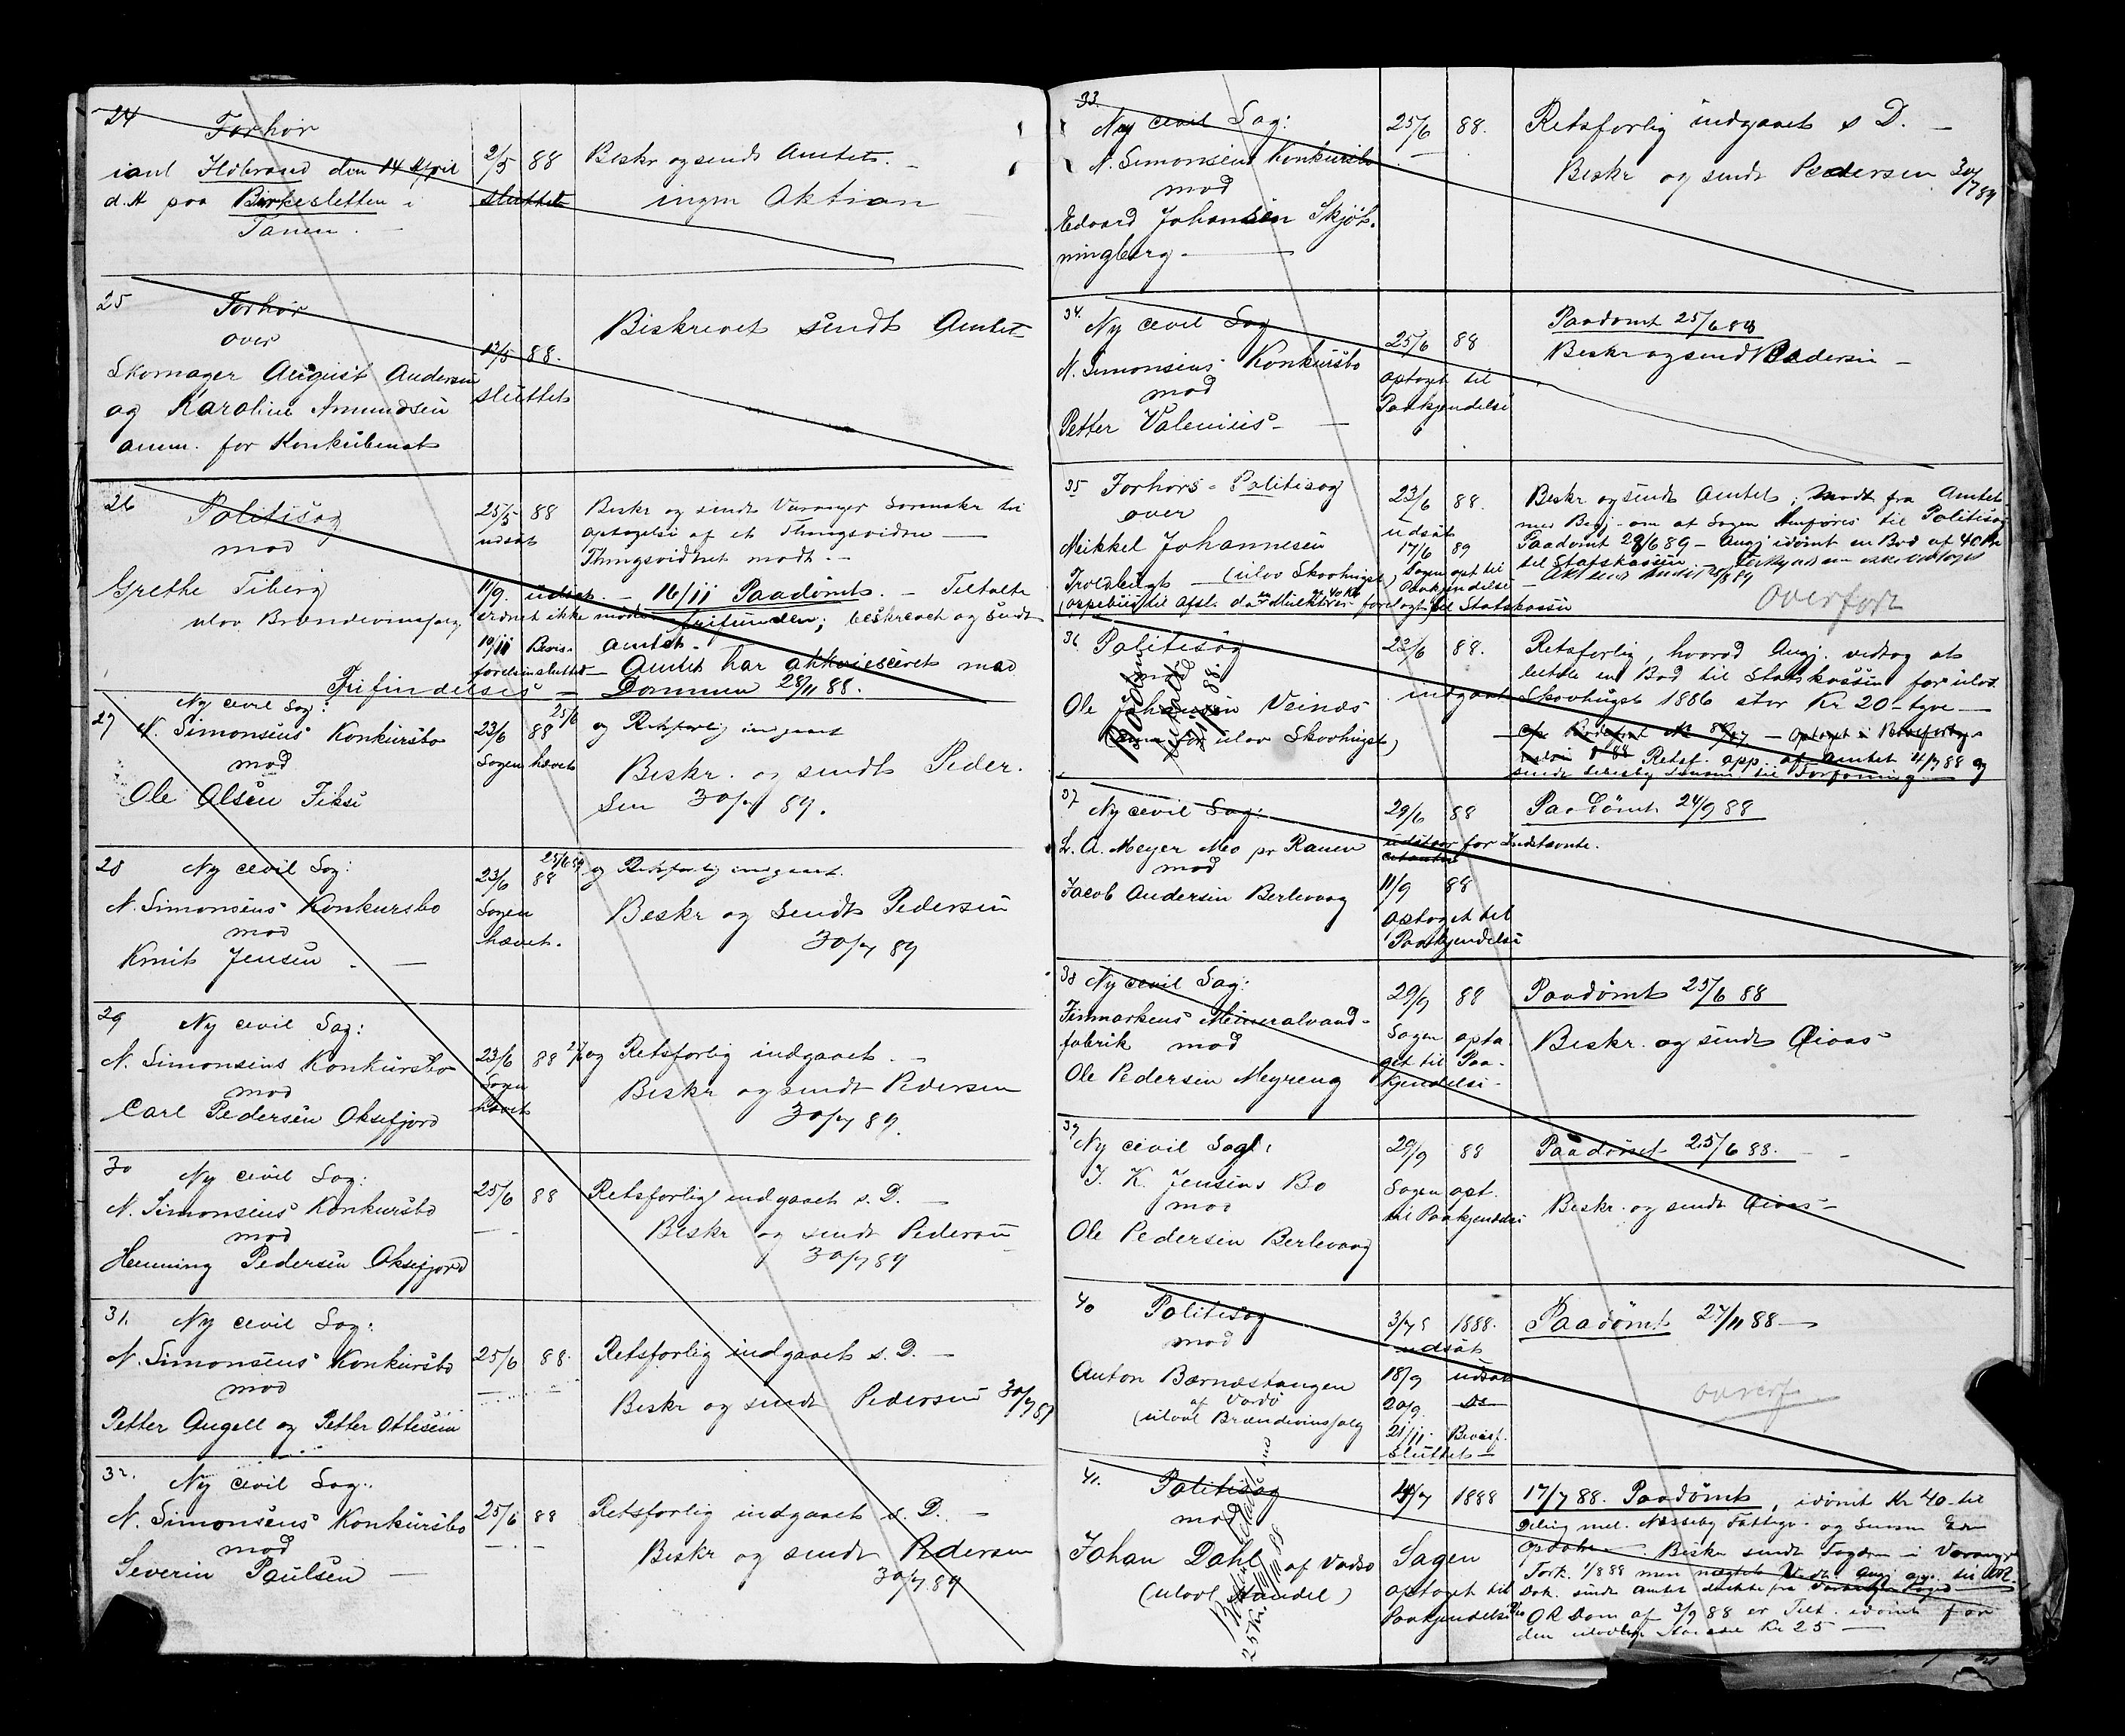 24
Forhør
ianl Ildbrand den 14 April
d.A paa Birkesletten i
Tanen.
2/5 88
sluttet
Beskr og sendt Amtet. —
ingen Aktion —
25
Forhør
over
Skomager August Andersen
og Karoline Amundsen
anm. for Konkubinat
13/5 88.
sluttet
Beskrevet sendt Amtet
26
Politisag
mod
Grethe Tiberg
ulov Brændevinssalg
25/5 88
udsat
Beskr og sendt Varanger Sorenskr til
optagelse af et Thingsvidne —
Thingsvidnet modt. —
11/9. udsat. — 16/11 Paadømt. — Tiltalte
frifunden; beskrevet og sendt
10/11 Bevis-
Amtet.
førelsen sluttet — Amtet har akkviesceret med
Frifindelses — Dommen 28/11 88.
27
Ny civil Sag:
N. Simonsens Konkursbo
mod
Ole Olsen Fiksi
23/6 88 25/6
Sagen hævet
og Retsforlig indgaaet
Beskr. og sendt Peder.
sen 30/7 89.
28
Ny civil Sag:
N. Simonsens Konkursbo
mod
Knut Jensen. —
23/6 88
Sagen
hævet.
og Retsforlig indgaaet.
Beskr og sendt Pedersen
30/7 89
29
Ny civil Sag:
N. Simonsens Konkursbo
mod
Carl Pedersen Oksefjord
23/6 88
Sagen
hævet
og Retsforlig indgaaet. —
Beskr og sendt Pedersen
30/7 89.
30
Ny civil Sag:
N. Simonsens Konkursbo
mod
Henning Pedersen Oksefjord
25/6 88
Retsforlig indgaaet s. D. —
Beskr og sendt Pedersen
30/7 89
31.
Ny civil Sag:
N. Simonsens Konkursbo
mod
Petter Angell og Petter Ottesen
25/6 88.
Retsforlig indgaaet s. D. —
Beskr og sendt Pedersen 30/7 89
32.
Ny civil Sag:
N. Simonsens Konkursbo
mod
Severin Paulsen —
25/6 88
Retsforlig indgaaet s. D. —
Beskr og sendt Pedersen
30/7 89
33.
Ny civil Sag:
N. Simonsens Konkursbo
mod
Edvard Johansen Skjøt-
ningberg. —
25/6 88.
Retsforlig indgaaet s D. —
Beskr og sendt Pedersen 30/7 89
34.
Ny civil Sag
N. Simonsens Konkursbo
mod
Petter Valenius — —
25/6 88
optaget til
Paakjendelse
Paadømt 25/6 88
Beskr og send Pedersen —
35
Forhørs- Politisag
over
Mikkel Johannesen
(ulov Skovhugst)
23/6 88.
udsat
17/6 89
Sagen opt til
Paakjendelse
Beskr og sendt Amtet; Modt fra Amtet
med Begj. om at Sagen henføres til Politisag
Paadømt 29/6 89 — Angj idømt en Bod af 40 Kr
til Statskassen. —
forelagt til Statskassen
Overført
36
Politisag
mod
Ole Johansen Veinæs
(anm for ulov Skovhugst)
23/6 88.
indgaaet
Retsforlig, hvorved Angj. vedtog at
betale en Bod til Statskassen for ulov.
Skovhugst 1886 stor Kr 20 — tyve —
Retsf. app. af Amtet 4/7 88 og
37
Ny civil Sag:
L. A. Meyer Mo pr Ranen
mod
Jacob Andersen Berlevaag
29/6 88
udsat for Indstævnte.
11/9 88
optaget til
Paakjendelse
Paadømt 24/9 88
38
Ny civil Sag:
Finmarkens Mineralvand-
fabrik mod
Ole Pedersen Meyreng
29/9 88
Sagen opta
get til Paa-
kjendelse —
Paadømt 25/6 88
Beskr. og sendt
39
Ny civil Sag:
J. K. Jensens Bo
mod
Ole Pedersen Berlevaag
29/9 88
Sagen opt.
til Paakjendelse
Paadømt 25/6 88. — —
Beskr. og sendt
40
Politisag
mod
Anton Barnæstangen
af Vardø
(ulovl Brændevinssalg
3/7 1888.
udsat
18/9 udsat
20/9. Do
21/11. Bevisf.
sluttet —
Paadømt 27/11 88 —
overf
41.
Politisag
mod
Johan Dahl af Vadsø
(ulovl Handel)
4/7 1888
Sagen
optaget til
Paakjendelse
17/7 88. Paadømt, idømt Kr 40 til
Deling mel. Næsseby Fattigv. og
Beskr sendt Fogden i Varanger
OR Dom af 3/9 88 er Tilt. idømt for
den ulovlige Handel Kr 25 —